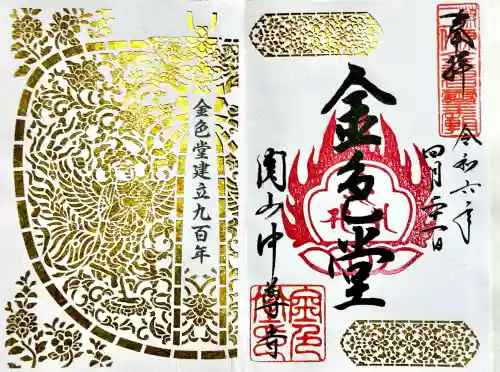 奉拝
令和六年
四月二十一日
金色堂
関山中尊寺
金色堂建立九百年